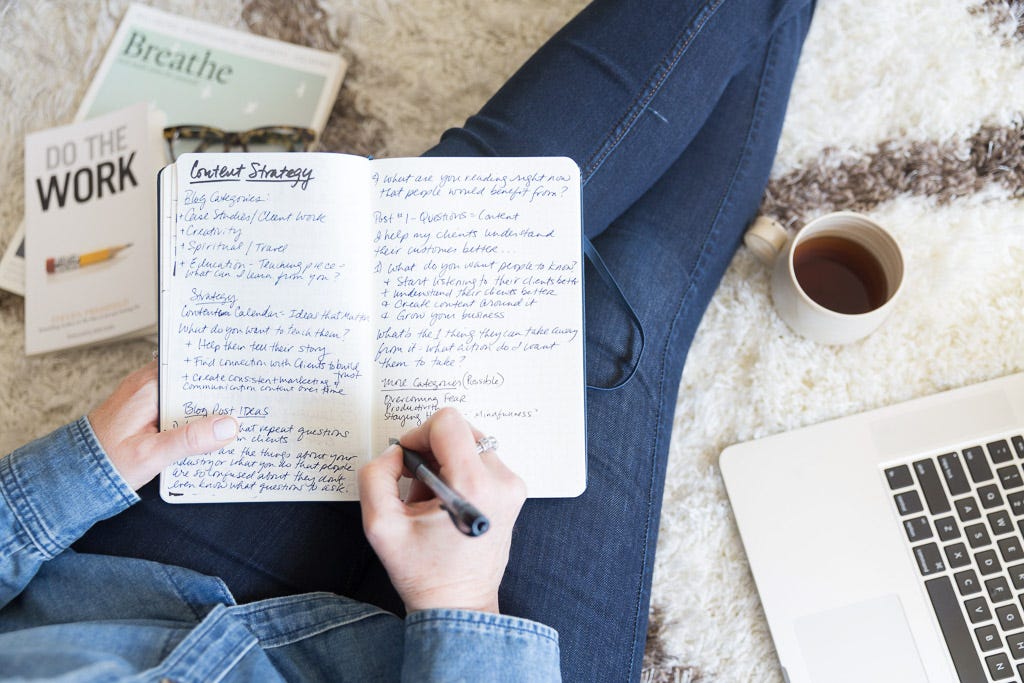 Breathe
DO THE
WORK
Content Strategy
Blog Categories:
+ Case Studies/Client Work
+ Creativity
+ Spiritual / Travel
+ Education - Teaching piece =
what can I learn from you?
Strategy
Content Calendar = Ideas that Matter
What do you want to teach them?
+ Help them tell their story
+ Find connection with clients to build
trust
+ Create consistent marketing &
communication content over time
Blog Post IDEAS
what repeat questions
clients
are the things about your
industry or what you do that people
are so confused about they don't
even know what questions to ask.
3) What are you reading right now
that people would benefit from?
Post #1 - Questions = Content
I help my clients understand
their customers better...
1) What do you want people to know?
+ Start listening to their clients better
+ understand their clients better
+ Create content around it
+ Grow your business
What's the 1 thing they can take away
from it - what action do I want
them to take?
More Categories (Possible)
Overcoming Fear
Productivity
Staying - Mindfulness